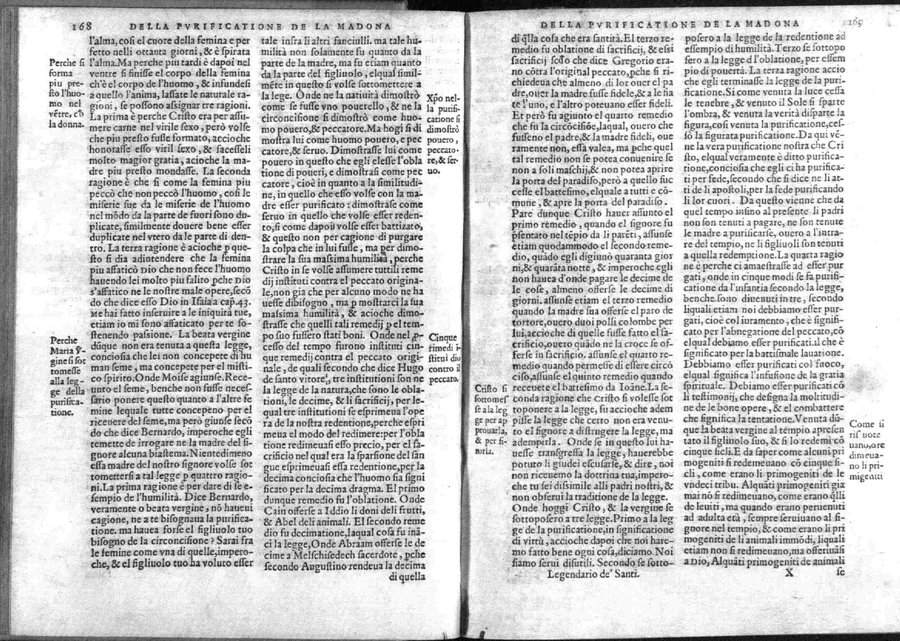 168
DELLA PVRIFICATIONE DE LA MADONA
l'alma, cosi el cuore della femina e per
fetto nelli ottanta giorni, & è spirata
l'alma. Ma perche piu tardi è dapoi nel
ventre si finisse el corpo della femina
ch'è el corpo de l'huomo, & infundesi
a quello l'anima, lassate le naturale ra-
gioni, se possono assignar tre ragioni.
La prima è perche Cristo era per assu
mere carne nel virile sexo, però volse
che piu presto fusse formato, accioche
honorasse esso viril sexo, & facesseli
molto magior gratia, acioche la ma
dre piu presto mondasse. La seconda
ragione è che si come la femina piu
peccò che non peccò l'huomo, cosi le
miserie sue da le miserie de l'huomo
nel mōdo da la parte de fuori sono du
plicate, similmente douere bene esser
duplicate nel vtero da le parte di den-
tro. La terra ragione è acioche p que
sto si dia adintendere che la femina
piu affaticò Dio che non fece l'huomo
hauendo lei molto piu falito pche Dio
s'affatico ne le nostre male opere, secō
do che dice esso Dio in Isaia a cap. 43.
Me hai fatto inseruire a le iniquità tue,
etiam io mi sono affaticato per te so-
stenendo passione. La beata vergine
dūque non era tenuta a questa legge,
conciosia che lei non concepete di hu
man seme, ma concepete per el misti-
co spirito. Onde Moise agiunse. Rece-
uuto el seme, benche non fusse neces-
sario ponere questo quanto a l'altre fe
mine lequale tutte concepeno per el
riceuere del seme, ma pero giunse secō
do che dice Bernardo, imperoche egli
temete de irrogare ne la madre del si-
gnore alcuna biastema. Nientedimeno
essa madre del nostro signore volse sot
tometersi a tal legge p quattro ragio-
ni. La prima ragione è per dare di se e-
sempio de l'humilità. Dice Bernardo,
veramente o beata vergine, nō haueui
cagione, ne a te bisognaua la purifica-
tione. ma haueua forse el figliuolo tuo
bisogno di la circoncisione? Sarai fra
le femine come vna di quelle, impero-
che, & el figliuolo tuo ha voluto esser
Perche si
forma
piu pre-
sto l'huo-
mo nel
vētre, cħ
la donna.
Perche
Maria v̄-
gine si sot
tomesse
alla leg-
ge della
purifica-
tione.
tale infra li altri fanciulli. ma tale hu-
milità non solamente fu quanto da la
parte de la madre, ma fu etiam quanto
da la parte del figliuolo, elqual simil-
mēte in questo si volse sottometere a
la lege. Onde ne la natiuità dimostrò
come se fusse vno pouerello, & ne la
circoncisione si dimostrò come huo-
mo pouero, & peccatore. Ma hogi si di
mostra lui come huomo pouero, e pec
catore, & seruo. Dimostrasse lui come
pouero in questo che egli elesse l'obla
tione di poueri, e dimostrasi come pec
catore, cioè in quanto a la similitudi-
ne, in quello che esso volse con la ma-
dre esser purificato: dimostrase come
seruo in quello che volse esser reden-
to, si come dapoi volse esser battizato,
& questo non per cagione di purgare
la colpa che in lui fusse, ma per dimo-
strare la sua massima humilità, perche
Cristo in se volse assumere tutti li reme
dij instituti contra el peccato origina-
le, non gia che per alcuno modo ne ha
uesse dibisogno, ma p mostrarci la sua
massima humilità, & acioche dimo-
strasse che quelli tali remedij p el tem-
po suo fussero stati boni. Onde nel p̱-
cesso del tempo furono instituti cin-
que remedij contra el peccato origi-
nale, de quali secondo che dice Hugo
de santo vitore, tre institutioni son ne
la legge de la natura, che sono le obla-
tioni, le decime, & li sacrificij, per le-
qual tre institutioni se esprimeua l'ope
ra de la nostra redentione, perche espri
meua el modo del redimere: per l'obla
tione redimeuasi esso precio, per el sa-
crificio nel qual era la sparsione del san
gue esprimeuasi essa redentione, per la
decima conciosia che l'huomo sia signi
ficato per la decima dragma. El primo
dunque remedio fu l'oblatione. Onde
Cain offerse a Iddio li doni deli frutti,
& Abel deli animali. El secondo reme
dio fu decimatione, laqual cosa fu ina-
ci la legge, Onde Abraam offerse le de
cime a Melschisedech sacerdote, pche
secondo Augustino rendeua la decima
di quella
Xp̄o nel-
la purifi-
catione si
dimostrò
pouero,
peccato-
re, & ser-
uo.
Cinque
rimedi i-
stitui dio
contro il
peccato.
169
DELLA PVRIFICATIONE DE LA MADONA
di q̄lla cosa che era santità. El terzo re-
medio fu oblatione di sacrificij, & essi
sacrificij secōdo che dice Gregorio era-
no cōtra l'original peccato, pche si ri-
chiedeua che almeno di lor oner el pa
dre, ouer la madre fusse fidele, & a le fia
te l'uno, e l'altro poteuano esser fideli.
Et però fu agiunto el quarto remedio
che fu la circōcisiōe, laqual, ouero che
fusseno el padre, & la madre fideli, oue
ramente non, essa valea, ma pche quel
tal remedio non se potea conuenire se
non a soli maschij, & non potea aprire
la porta del paradiso, però a quello suc
cesse el battesimo, elquale a tutti è cō-
mune, & apre la porta del paradiso.
Pare dunque Cristo hauer assunto el
primo remedio, quando el signore fu
p̱sentato nel tēpio da li parēti, assunse
etiam quodammodo el secondo reme-
dio, quādo egli digiunò quaranta gior
ni, & quarāta notte, & imperoche egli
non hauea d'onde pagare le decime de
le cose, almeno offerse le decime di
giorni. assunse etiam el terzo remedio
quando la madre sua offerse el paro de
tortore, ouero duoi polli colombe per
lui, accioche di quelle fusse fatto el sa-
crificio, ouero quādo ne la croce se of-
ferse in sacrificio. assunse el quarto re-
medio quando permesse di essere circō
ciso, assunse el quinto remedio quando
recenete el battesimo da Ioāne. La se-
conda ragione che Cristo si volesse sot
toponere a la legge, fu accioche adem
pisse la legge che certo non era venu-
to el signore a distrugere la legge, ma
ademperla. Onde se in questo lui ha-
uesse transgressa la legge, hauerebbe
potuto li giudei escusarse, & dire, noi
non riceuemo la dottrina tua, impero-
che tu sei dissimile alli padri nostri, &
non obserui la traditione de la legge.
Onde hoggi Cristo, & la vergine se
sottoposero a tre legge. Primo a la leg
ge de la purificatione, in significatione
di virtù, accioche dapoi che noi hare-
mo fatto bene ogni cosa, diciamo. Noi
siamo serui disutili. Secondo se sotto-
Legendario de' Santi.
Cristo si
sottomes
se a la leg
ge per ap
prouarla,
& per fi-
nirla.
posero a la legge de la redentione ad
essempio di humilità. Terzo se sottopo
sero a la legge d'oblatione, per essem-
pio di pouertà. La terza ragione accio
che egli terminasse la legge de la puri-
ficatione. Si come venuta la luce cessa
le tenebre, & venuto il Sole si sparte
l'ombra, & venuta la verità disparte la
figura, cosi venuta la purificatione, ces-
sò la figurata purificatione. Da qui vē-
ne la vera purificatione nostra che Cri
sto, elqual veramente è ditto purifica-
tione, conciosia che egli ci ha purifica-
ti per fede, secondo che si dice ne li at-
ti de li apostoli, per la fede purificando
li lor cuori. Da questo vienne che da
quel tempo insino al presente li padri
non son tenuti a pagare, ne son tenute
le madre a purificarse, ouero a l'intra-
re del tempio, ne li figliuoli son tenuti
a quella redemptione. La quarta ragio
ne è perche ci amaestrasse ad esser pur
gati, onde in cinque modi se fa purifi-
catione da l'infantia secondo la legge,
benche sono diuenuti in tre, secondo
liquali etiam noi debbiamo esser pur-
gati, cioè col iuramento, che è signifi-
cato per l'abnegatione del peccato, cō
el qual debiamo esser purificati. il che è
significato per la battismale lauatione.
Debbiamo esser purificati col fuoco,
elqual significa l'infusione de la gratia
spirituale. Debiamo esser purificati cō
li testimonij, che designa la moltitudi-
ne de le bone opere, & el combattere
che significa la tentatione. Venuta dū-
que la beata vergine al tempio apresen
tato il figliuolo suo, & si lo redemi cō
cinque sicli. E da saper come alcuni pri
mogeniti si redimeuano cō cinque si-
cli, come erano li primogeniti de le
vndeci tribu. Alquāti primogeniti gia
mai nō si redimeuano, come erano q̄lli
de leuiti, ma quando erano peruenuti
ad adulta età, sempre seruiuano al si-
gnore nel tempio, & come erano li pri
mogeniti de li animali immōdi, liquali
etiam non si redimeuano, ma offeriuāsi
a DIO, Alquāti primogeniti de animali
X
se
Come si
rif note
uano, ore
dimeua-
no li pri-
migeniti